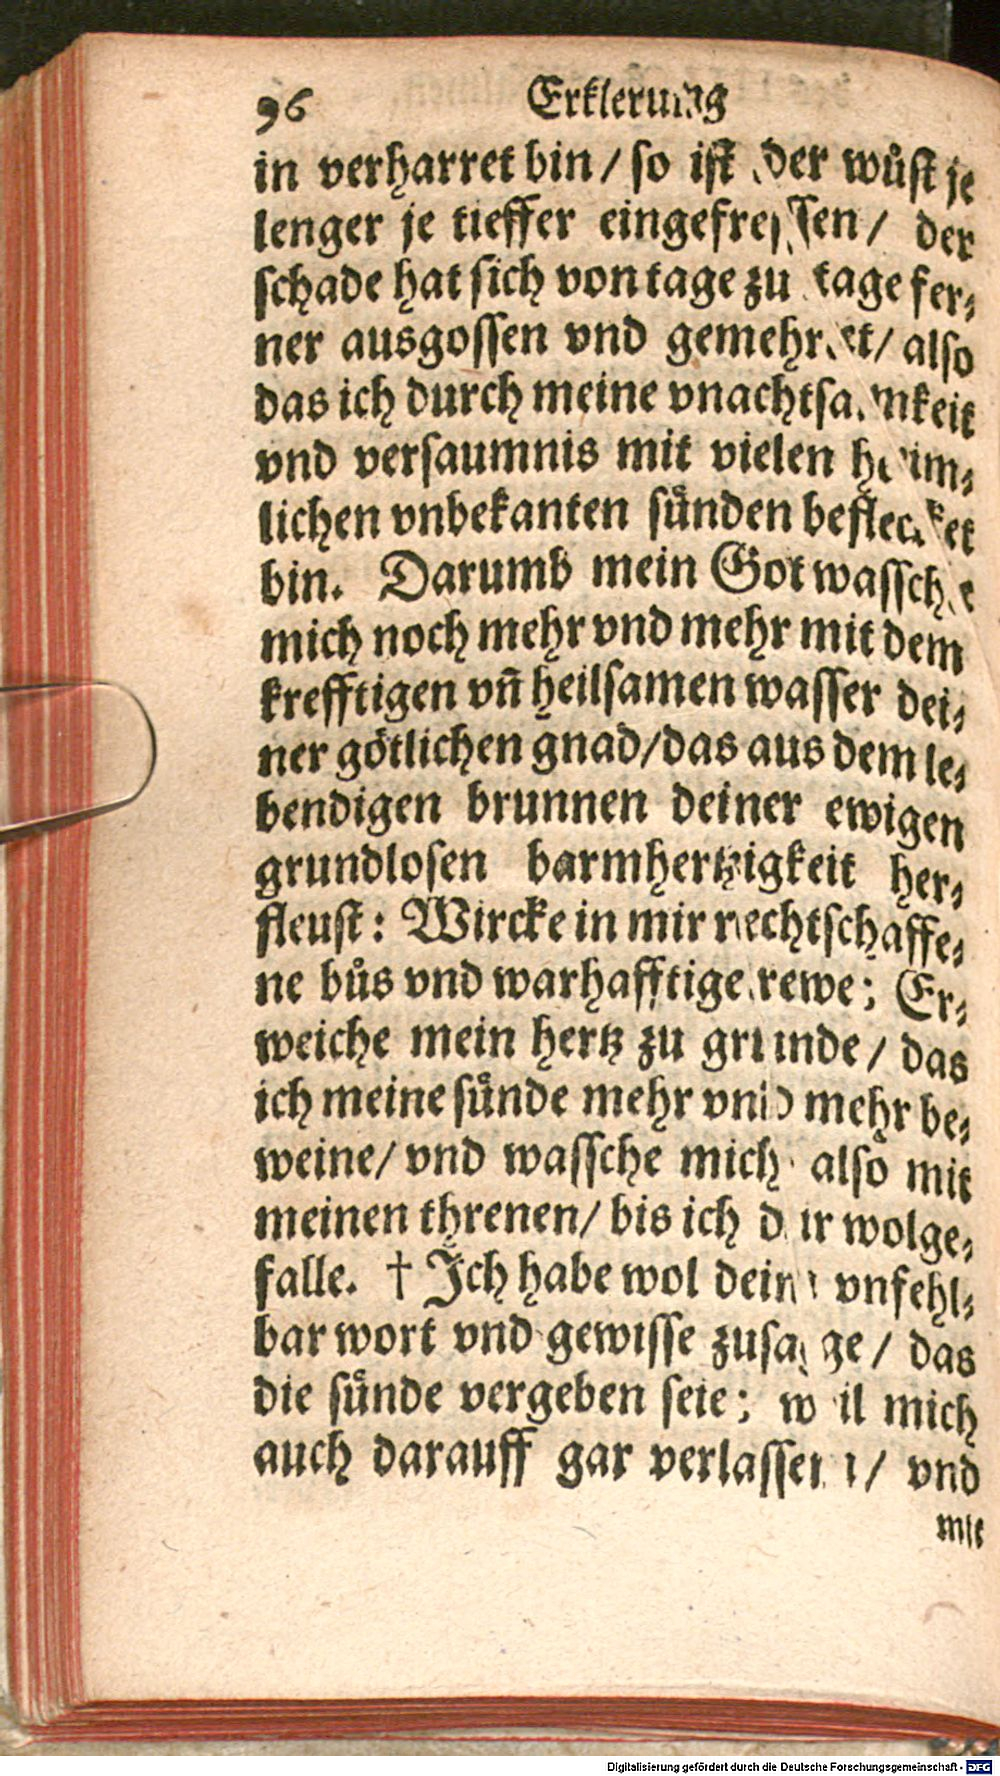 96 Erklerung
in verharret bin / so ist der wuͤst je
lenger je tieffer eingefressen / der
schade hat sich von tage zu tage fer⸗
ner ausgossen vnd gemehret / also
das ich durch meine vnachtsamkeit
vnd versaumnis mit vielen heim⸗
lichen vnbekanten suͤnden beflecket
bin. Darumb mein Got wassche
mich noch mehr vnd mehr mit dem
krefftigen vñ heilsamen wasser dei⸗
ner goͤtlichen gnad / das aus dem le⸗
bendigen brunnen deiner ewigen
grundlosen barmhertzigkeit her⸗
fleust: Wircke in mir rechtschaffe⸗
ne buͤs vnd warhafftige rewe: Er⸗
weiche mein hertz zu grunde / das
ich meine suͤnde mehr vnd mehr be⸗
weine / vnd wassche mich also mit
meinen threnen / bis ich dir wolge⸗
falle. † Ich habe wol dein vnfehl⸗
bar wort vnd gewisse zusage / das
die suͤnde vergeben seie: wil mich
auch darauff gar verlassen / vnd
mit
Digitalisierung gefördert durch die Deutsche Forschungsgemeinschaft - DFG